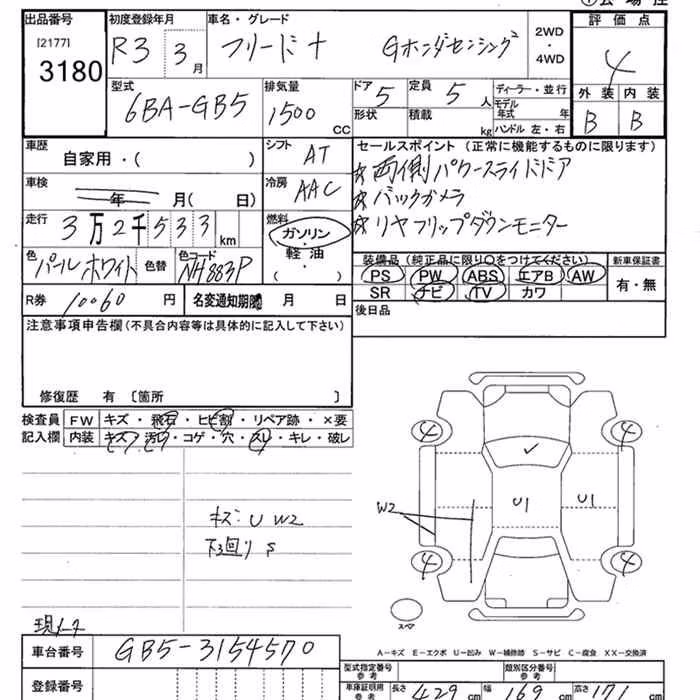 出品番号 初度登録年月 車名・グレード 2WD・4WD 評価点
[2177]
3180 R3 3月 フリード+ Gホンダセンシング 4
型式 排気量 ドア 定員 ディーラー・並行 外装 内装
6BA-GB5 1500CC 5 5人 モデル年式 年 B B
形状 積載 kg ハンドル 左・右
車歴 自家用・( ) シフト AT セールスポイント (正常に機能するものに限ります)
☆両側パワースライドドア
車検 年 月( 日) 冷房 AAC ☆バックカメラ
走行 3万2千533km 燃料 ガソリン・軽油・( ) ☆リヤフリップダウンモニター
色 パールホワイト 色替 色コード NH883P 装備品 (純正品に限り○をつけてください) 新車保証書
PS PW ABS エアB AW 有・無
R券 10060円 名変通知期限 月 日 SR ナビ TV カワ
注意事項申告欄(不具合内容等は具体的に記入して下さい) 後日品
修復歴 有 [箇所 ]
検査員 FW キズ・飛石・ヒビ割・リペア跡・×要
記入欄 内装 キズ・汚れ・コゲ・穴・スレ・キレ・破レ
4 4
✓
キズ:U W2
下回り S
W2 U1 U1
4 4
スペア
現データ
A-キズ E-エクボ U-凹み W-補修跡 S-サビ C-腐食 XX-交換済
車台番号 GB5-3154570
型式指定番号 類別区分番号
登録番号 車庫証明用 参考 長さ 429cm 幅 169cm 高さ 171cm